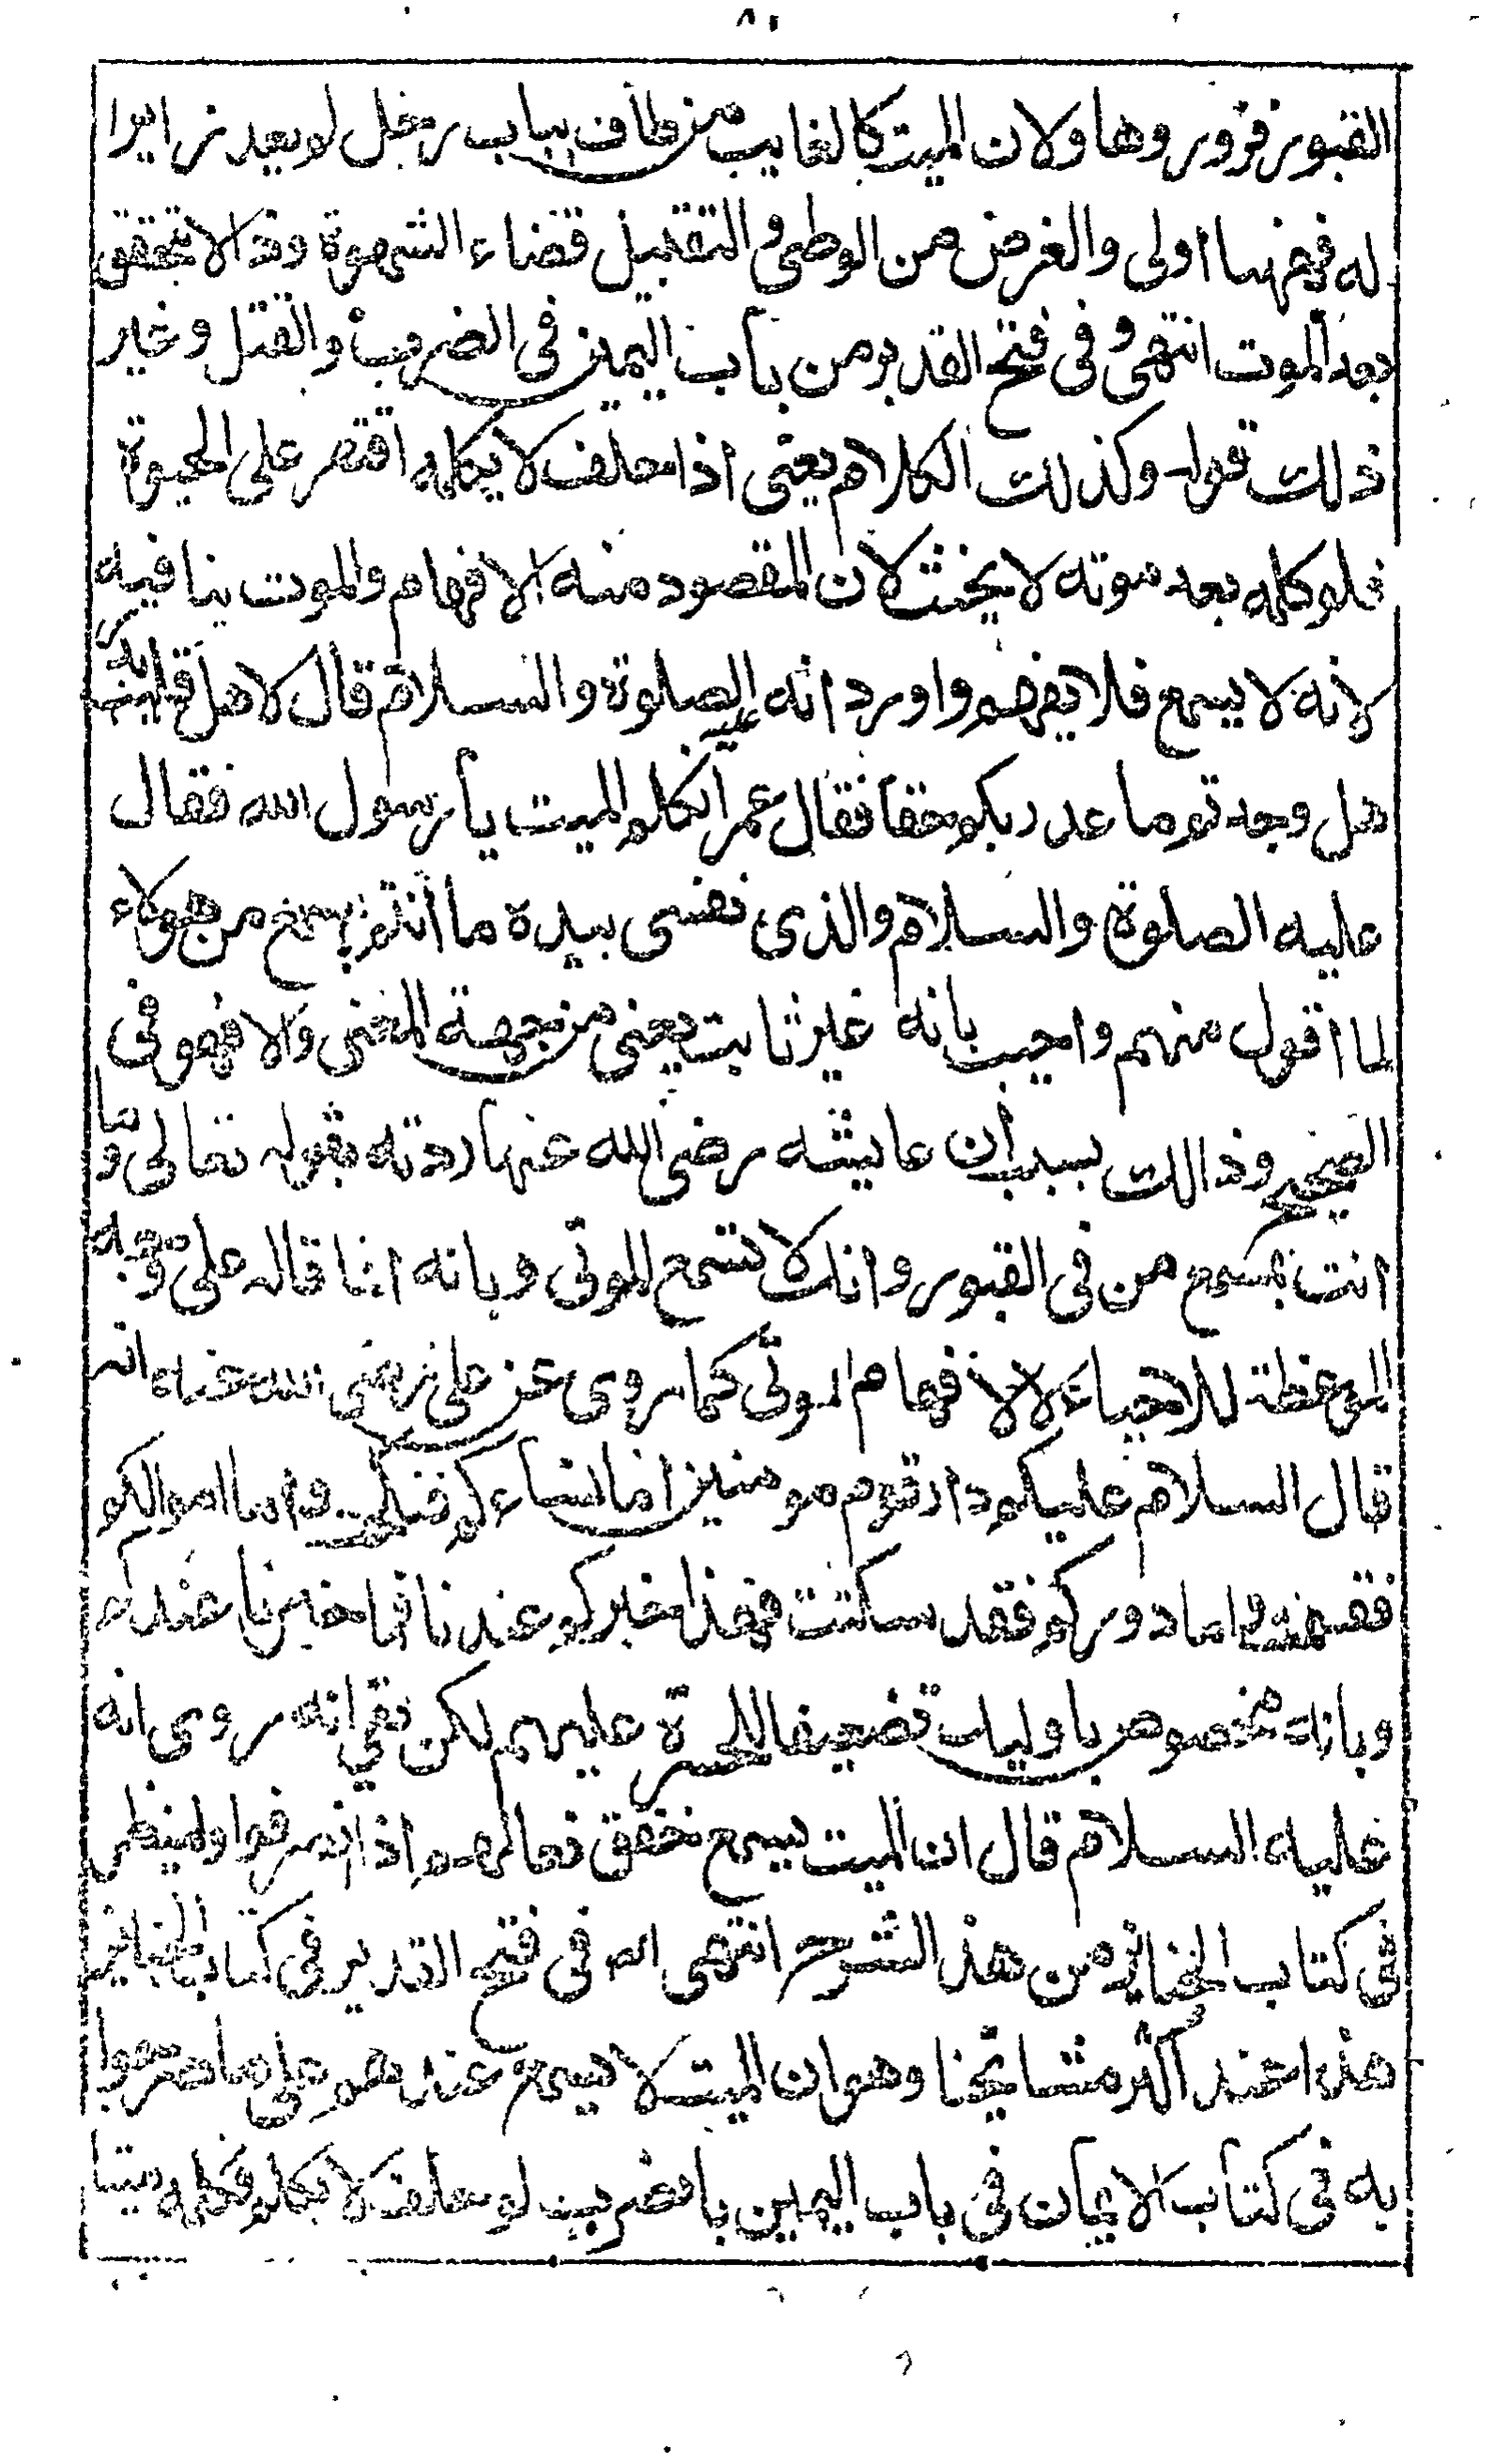 ٨١
القبور فزوروها ولان الميت كالغايب من طاف بباب رجل لم يعد زايرا
له فههنا اولى والغرض من الوطى والتقبيل قضاء الشهوة وذا لا يتحقق
بعد الموت انتهى وفى فتح القدير من باب اليمين فى الضرب والقتل وغير
ذلك قوله وكذلك الكلام يعنى اذا حلف لا يكلمه اقتصر على الحيوة
فلو كلمه بعد موته لا يحنث لان المقصود منه الافهام والموت ينافيه
لانه لا يسمع فلا يفهم واورد انه عليه الصلوة والسلام قال لاهل قليب بدر
هل وجدتم ما وعد ربكم حقا فقال عمر اتكلم الميت يا رسول الله فقال
عليه الصلوة والسلام والذى نفسى بيده ما انتم باسمع من هولاء
لما اقول منهم واجيب بانه غير ثابت يعنى من جهة المعنى والا فهو فى
الصحيح وذالك بسبب ان عايشه رضى الله عنها ردته بقوله تعالى وما
انت بمسمع من فى القبور وانك لا تسمع الموتى وبانه انما قاله على وجه
الموعظة للاحياء لا لافهام الموتى كما روى عن على رضى الله عنه انه
قال السلام عليكم دار قوم مومنين اما نساءكم فنكحت واما اموالكم
فقسمت واما دوركم فقد سكنت فهذا خبركم عندنا فما خبرنا عندكم
وبانه مخصوص باوليك تضعيفا للحسرة عليهم لكن بقى انه روى انه
عليه السلام قال ان الميت يسمع خفق نعالهم اذا انصرفوا ولينظر
فى كتاب الجنائز من هذ الشرح انتهى الم فى فتح القدير فى كتاب الجنايز
هذا عند اكثر مشايخنا وهو ان الميت لا يسمع عندهم على ما صرحوا
به فى كتاب الايمان فى باب اليمين بالضرب لو حلف لا يكلمه فكلمه ميتا